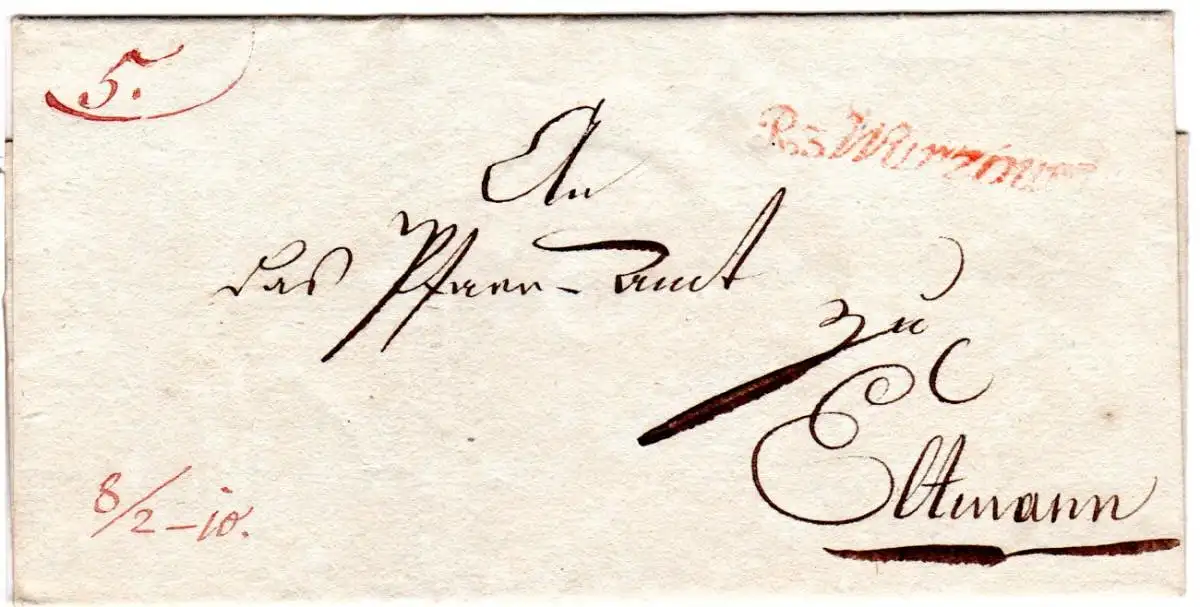 5.
R3 Würzburg
An
das Pfarr-amt
zu
Eltmann
8/2-10.